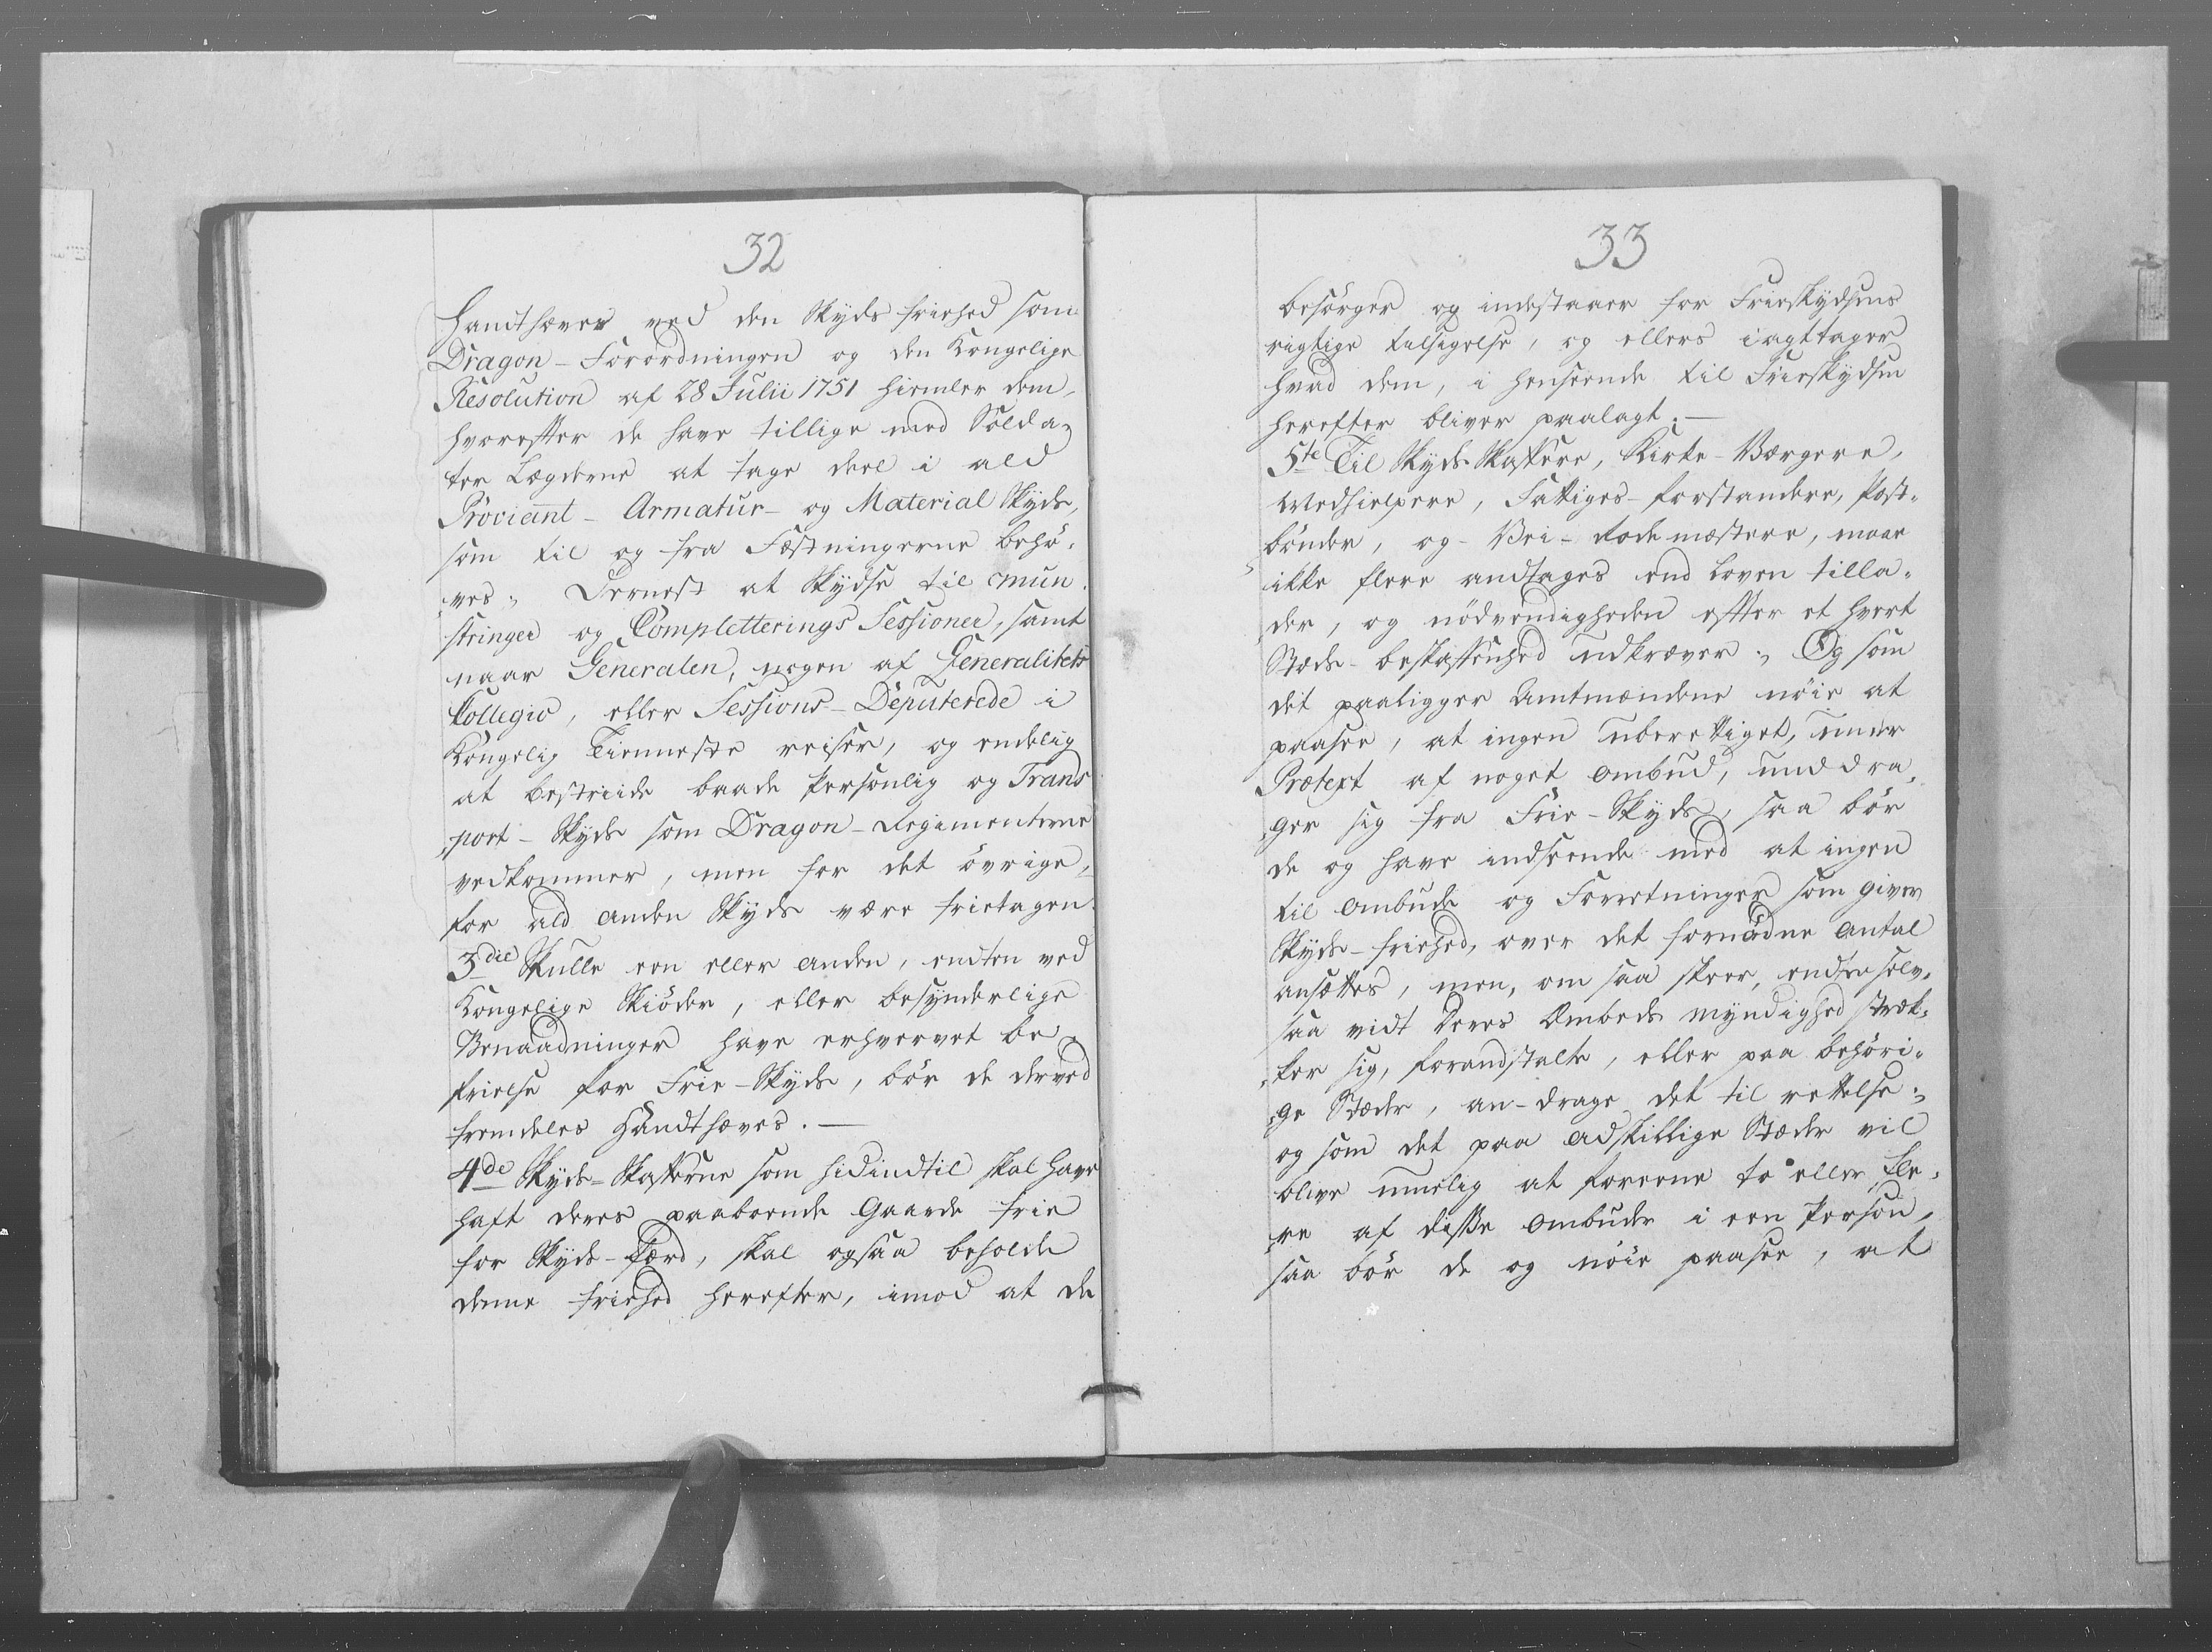 32
Handthæves ved den Skyds friehed som
Dragon-Forordningen og den Kongelige
Resolution af 28 Julii 1751 hiemler dem,
hvorefter de have tillige med Solda-
ter Lægderne at tage deel i ald
Proviant- Armatur- og Material Skyds,
som til og fra Fæstningerne behø-
ves; Dernest at Skydse til Mun-
stringer og Completterings Sessioner, samt
naar Generalen, nogen af Generalitets
Collegio, eller Sessions-Deputerede i
Kongelig Tienneste reiser, og endelig
at bestriide baade Personlig og Trans
port-Skyds som Dragon-Regimenterne
vedkommer, men for det øvrige,
for ald anden Skyds være frietagen.
3die Skulle een eller anden, endten ved
Kongelige Skiøder, eller besynderlige
Benaadninger have erhvervet be-
frielse for Frie-Skyds, bør de derved
fremdeles Handthæves. —
4de Skyds-Skafferne som hidindtil skal have
haft deres paaboende Gaarde frie
for Skyds-færd, skal ogsaa beholde
denne friehed herefter, imod at de
33
besørger og indestaaer for Frieskydsens
rigtige tilsigelse, og ellers iagttager
hvad dem, i henseende til Frieskydsen
herefter bliver paalagt. —
5te Til Skyds Skaffere, Kirke-Værgere,
Medhielpere, Fattiges-forstandere, Post-
bønder, og Vei-Rodemæstere, maae
ikke flere andtages end Loven tilla-
der, og nødvendigheden efter et hvert
Stæds beskaffenhed udkræver; Og som
det paaligger Amtmændene nøie at
paasee, at ingen uberettiget, under
Prætext af noget ombud, unddra-
ger sig fra Frie-Skyds, saa bør
de og have indseende med at ingen
til ombude og Forretninger som giver
Skyds-friehed, over det fornødne antal
ansættes, men, om saa skeer, endten selv,
saa vidt Deres Embeds Myndighed stræk-
ker sig, forandstalte, eller paa behøri-
ge Stæder, an-drage det til rettelse;
og som det paa adskillige Stæder vil
blive muelig at foreene to eller fle-
re af disse ombuder i een Person,
saa bør de og nøie paasee, at